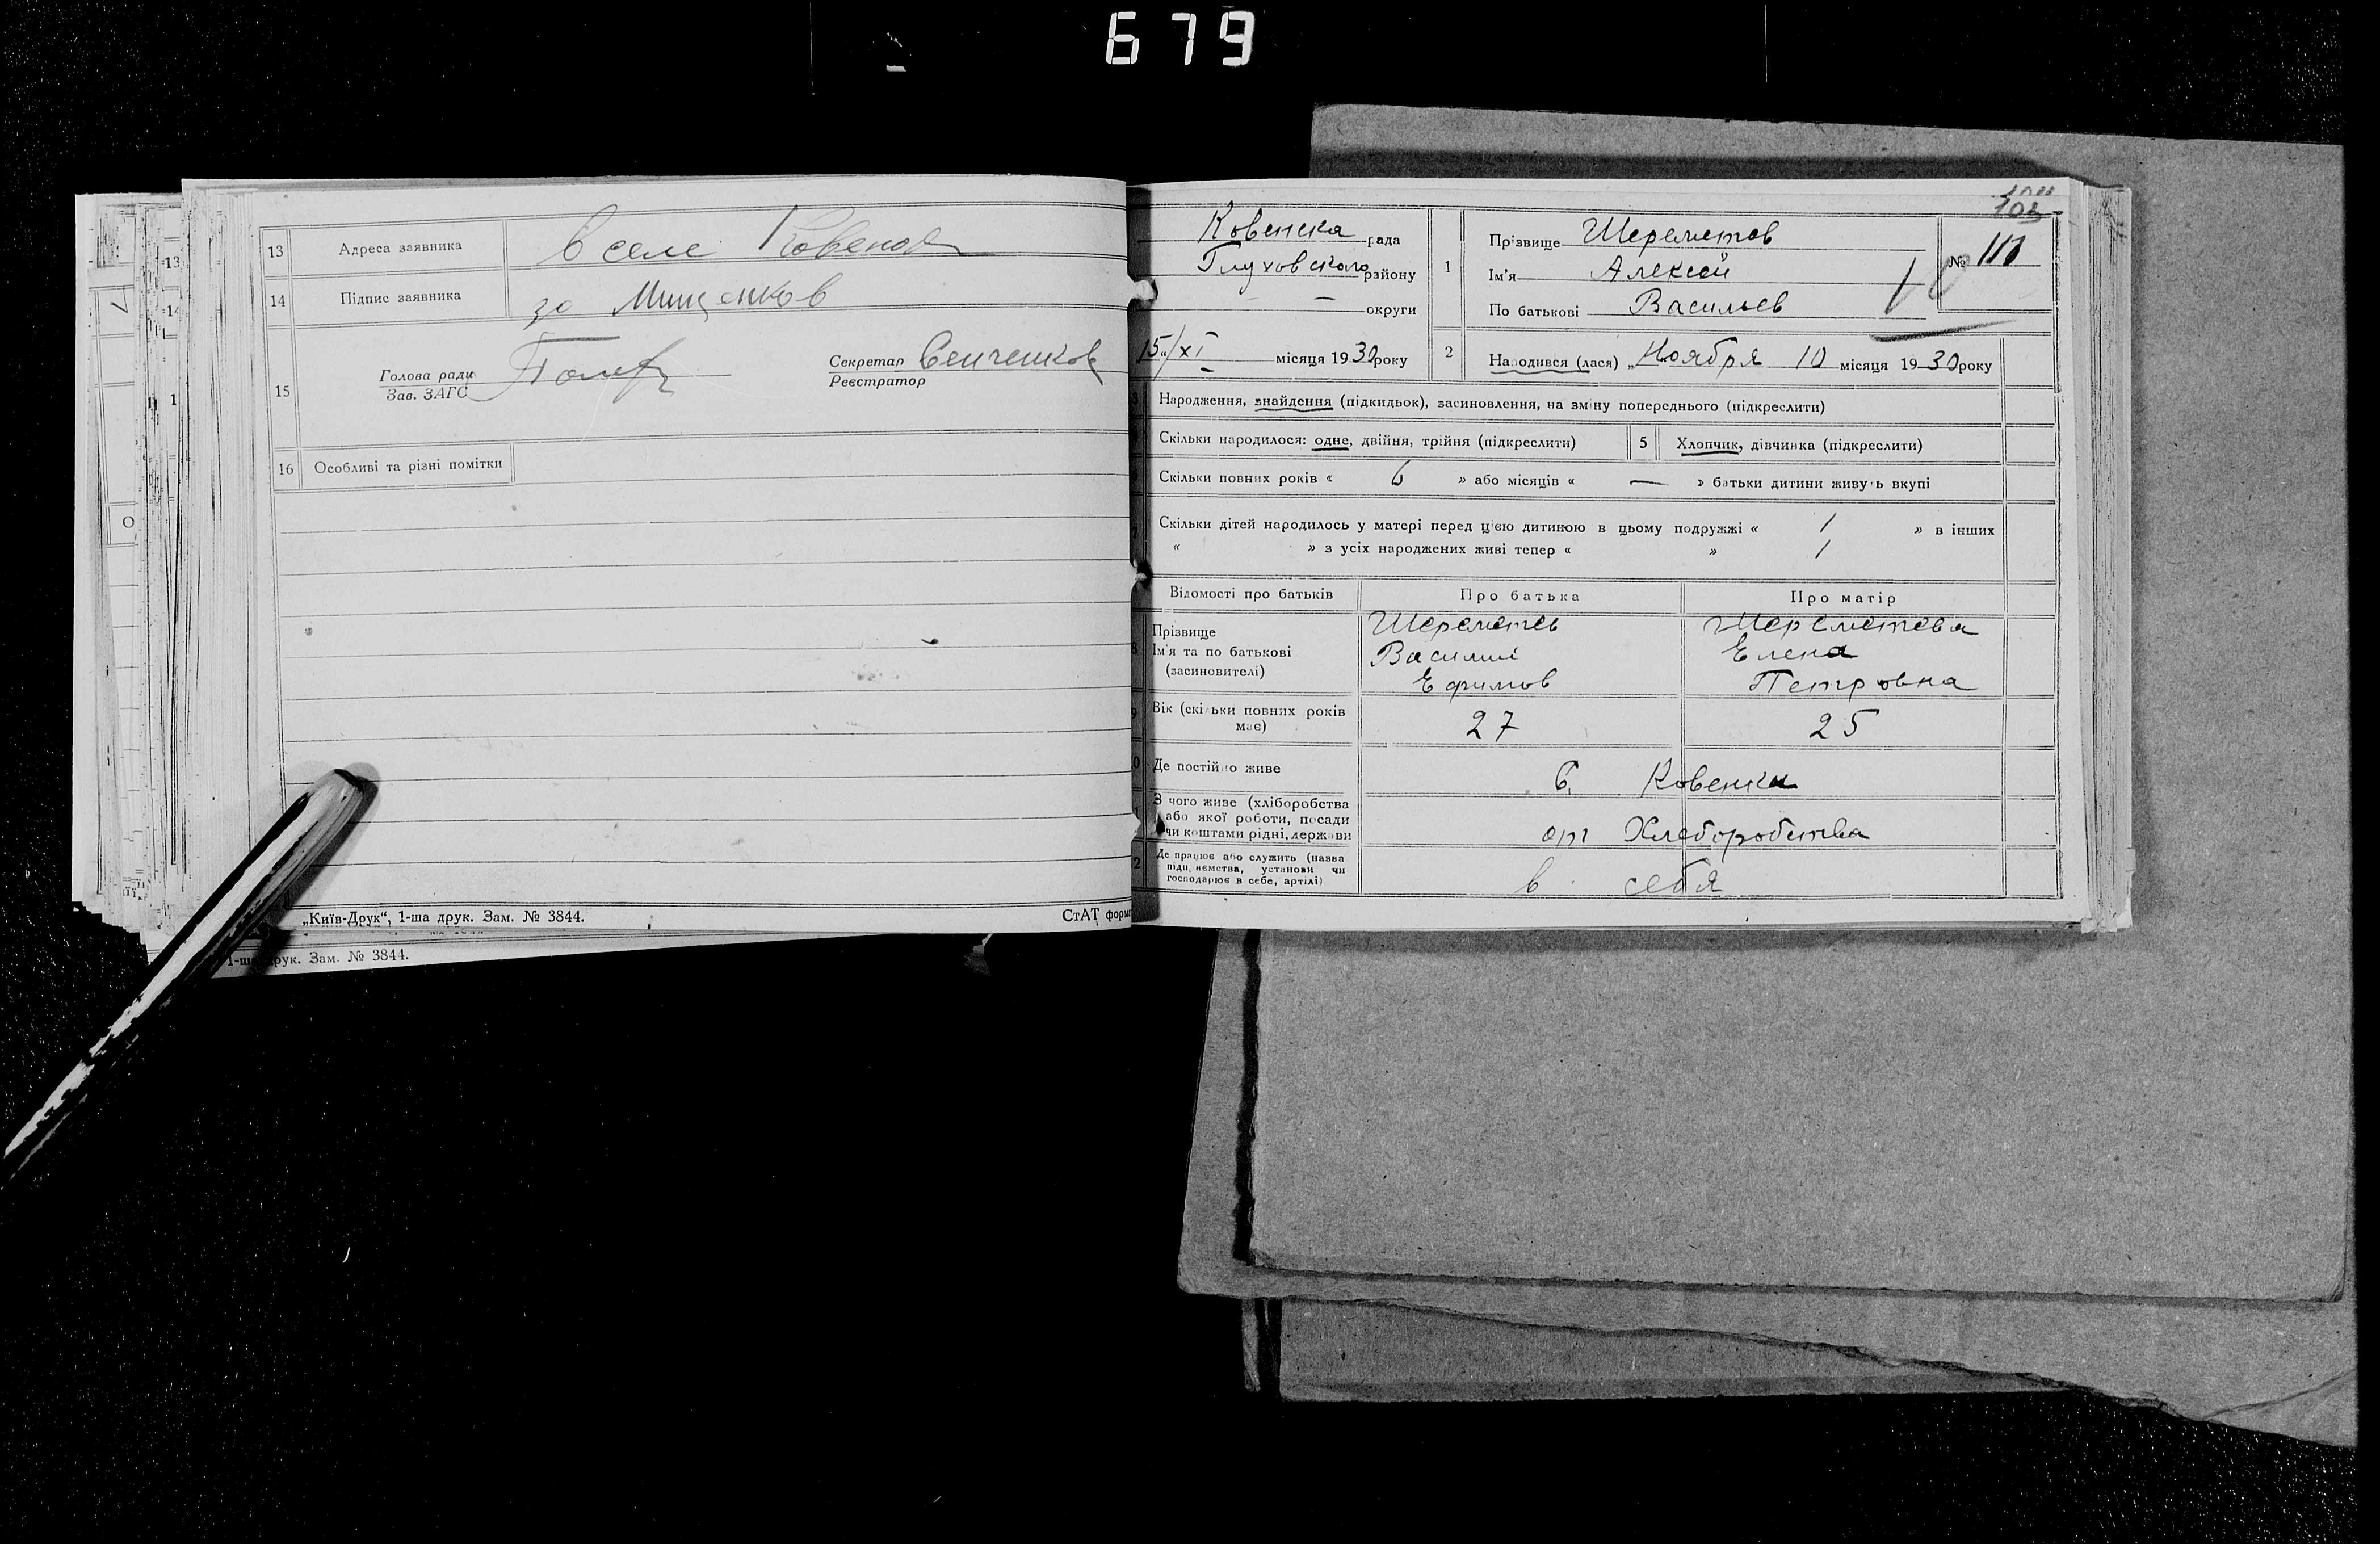 679
13 Адреса заявника в селе Ковенка
14 Підпис заявника за Мищенков
15 Голова ради
Зав. ЗАГС
Секретар Сенченков
Реєстратор
16 Особливі та різні помітки
„Київ-Друк“, 1-ша друк. Зам. № 3844.
СтАТ форм
1-ша друк. Зам. № 3844.
103
Ковенска рада
Глуховского району
— — округи
15/XI місяця 1930 року
1 Прізвище Шереметов
Ім'я Алексей
По батькові Васильев
№ 111
2 Народився (лася) „Ноября 10 місяця 1930 року
3 Народження, знайдення (підкидьок), засиновлення, на зміну попереднього (підкреслити)
Скільки народилося: одне, двійня, трійня (підкреслити) 5 Хлопчик, дівчинка (підкреслити)
Скільки повних років « 6 » або місяців « — » батьки дитини живуть вкупі
Скільки дітей народилось у матері перед цією дитиною в цьому подружжі « 1 » в інших
« » з усіх народжених живі тепер « » 1
Відомості про батьків Про батька Про матір
8 Прізвище
Ім'я та по батькові
(засиновителі)
Шереметев
Василий
Ефимов
Шереметева
Елена
Петровна
9 Вік (скільки повних років має) 27 25
0 Де постійно живе с. Ковенка
З чого живе (хліборобства
або якої роботи, посади
чи коштами рідні, держави
от Хлеборобства
2 Де працює або служить (назва
підприємства, установи чи
господарює в себе, артілі)
в себя